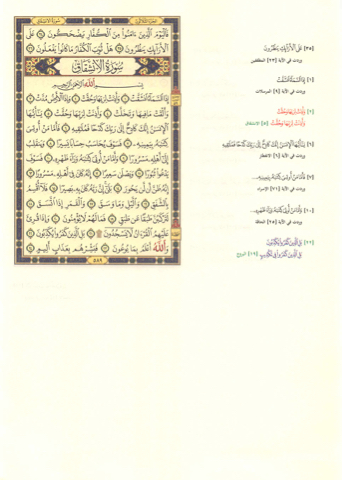 سورة الانشقاق
الجزء الثلاثون
فَالْيَوْمَ الَّذِينَ ءَامَنُوا مِنَ الْكُفَّارِ يَضْحَكُونَ ٣٤ عَلَى
الْأَرَائِكِ يَنظُرُونَ ٣٥ هَلْ ثُوِّبَ الْكُفَّارُ مَا كَانُوا يَفْعَلُونَ ٣٦
سُورَةُ الِانشِقَاقِ
بِسْمِ اللَّهِ الرَّحْمَٰنِ الرَّحِيمِ
إِذَا السَّمَاءُ انشَقَّتْ ١ وَأَذِنَتْ لِرَبِّهَا وَحُقَّتْ ٢ وَإِذَا الْأَرْضُ مُدَّتْ ٣
وَأَلْقَتْ مَا فِيهَا وَتَخَلَّتْ ٤ وَأَذِنَتْ لِرَبِّهَا وَحُقَّتْ ٥ يَٰأَيُّهَا
الْإِنسَٰنُ إِنَّكَ كَادِحٌ إِلَىٰ رَبِّكَ كَدْحًا فَمُلَٰقِيهِ ٦ فَأَمَّا مَنْ أُوتِيَ
كِتَٰبَهُ بِيَمِينِهِ ٧ فَسَوْفَ يُحَاسَبُ حِسَابًا يَسِيرًا ٨ وَيَنقَلِبُ
إِلَىٰ أَهْلِهِ مَسْرُورًا ٩ وَأَمَّا مَنْ أُوتِيَ كِتَٰبَهُ وَرَاءَ ظَهْرِهِ ١٠ فَسَوْفَ
يَدْعُوا ثُبُورًا ١١ وَيَصْلَىٰ سَعِيرًا ١٢ إِنَّهُ كَانَ فِي أَهْلِهِ مَسْرُورًا ١٣
إِنَّهُ ظَنَّ أَن لَّن يَحُورَ ١٤ بَلَىٰ إِنَّ رَبَّهُ كَانَ بِهِ بَصِيرًا ١٥ فَلَا أُقْسِمُ
بِالشَّفَقِ ١٦ وَالَّيْلِ وَمَا وَسَقَ ١٧ وَالْقَمَرِ إِذَا اتَّسَقَ ١٨
لَتَرْكَبُنَّ طَبَقًا عَن طَبَقٍ ١٩ فَمَا لَهُمْ لَا يُؤْمِنُونَ ٢٠ وَإِذَا قُرِئَ
عَلَيْهِمُ الْقُرْءَانُ لَا يَسْجُدُونَ ٢١ بَلِ الَّذِينَ كَفَرُوا يُكَذِّبُونَ ٢٢
وَاللَّهُ أَعْلَمُ بِمَا يُوعُونَ ٢٣ فَبَشِّرْهُم بِعَذَابٍ أَلِيمٍ ٢٤
٥٨٩
[٣٥] عَلَى الْأَرَائِكِ يَنظُرُونَ
وردت في الآية [٢٣] المطففين
[١] إِذَا السَّمَاءُ انشَقَّتْ
وردت في الآية [٩] المرسلات
[٢] وَأَذِنَتْ لِرَبِّهَا وَحُقَّتْ
وَأَذِنَتْ لِرَبِّهَا وَحُقَّتْ [٥] الانشقاق
[٦] يَٰأَيُّهَا الْإِنسَٰنُ إِنَّكَ كَادِحٌ إِلَىٰ رَبِّكَ كَدْحًا فَمُلَٰقِيهِ
وردت في الآية [٦] الانفطار
[٧] فَأَمَّا مَنْ أُوتِيَ كِتَٰبَهُ بِيَمِينِهِ...
وردت في الآية [٧١] الإسراء
[١٠] وَأَمَّا مَنْ أُوتِيَ كِتَٰبَهُ وَرَاءَ ظَهْرِهِ...
وردت في الآية [٢٥] الحاقة
[٢٢] بَلِ الَّذِينَ كَفَرُوا يُكَذِّبُونَ
بَلِ الَّذِينَ كَفَرُوا فِي تَكْذِيبٍ [١٩] البروج